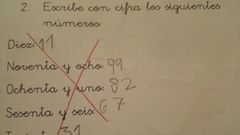 2. Escribe con cifra los siguientes
números:
Diez: 11
Noventa y ocho: 99
Ochenta y uno: 82
Sesenta y seis: 67
31